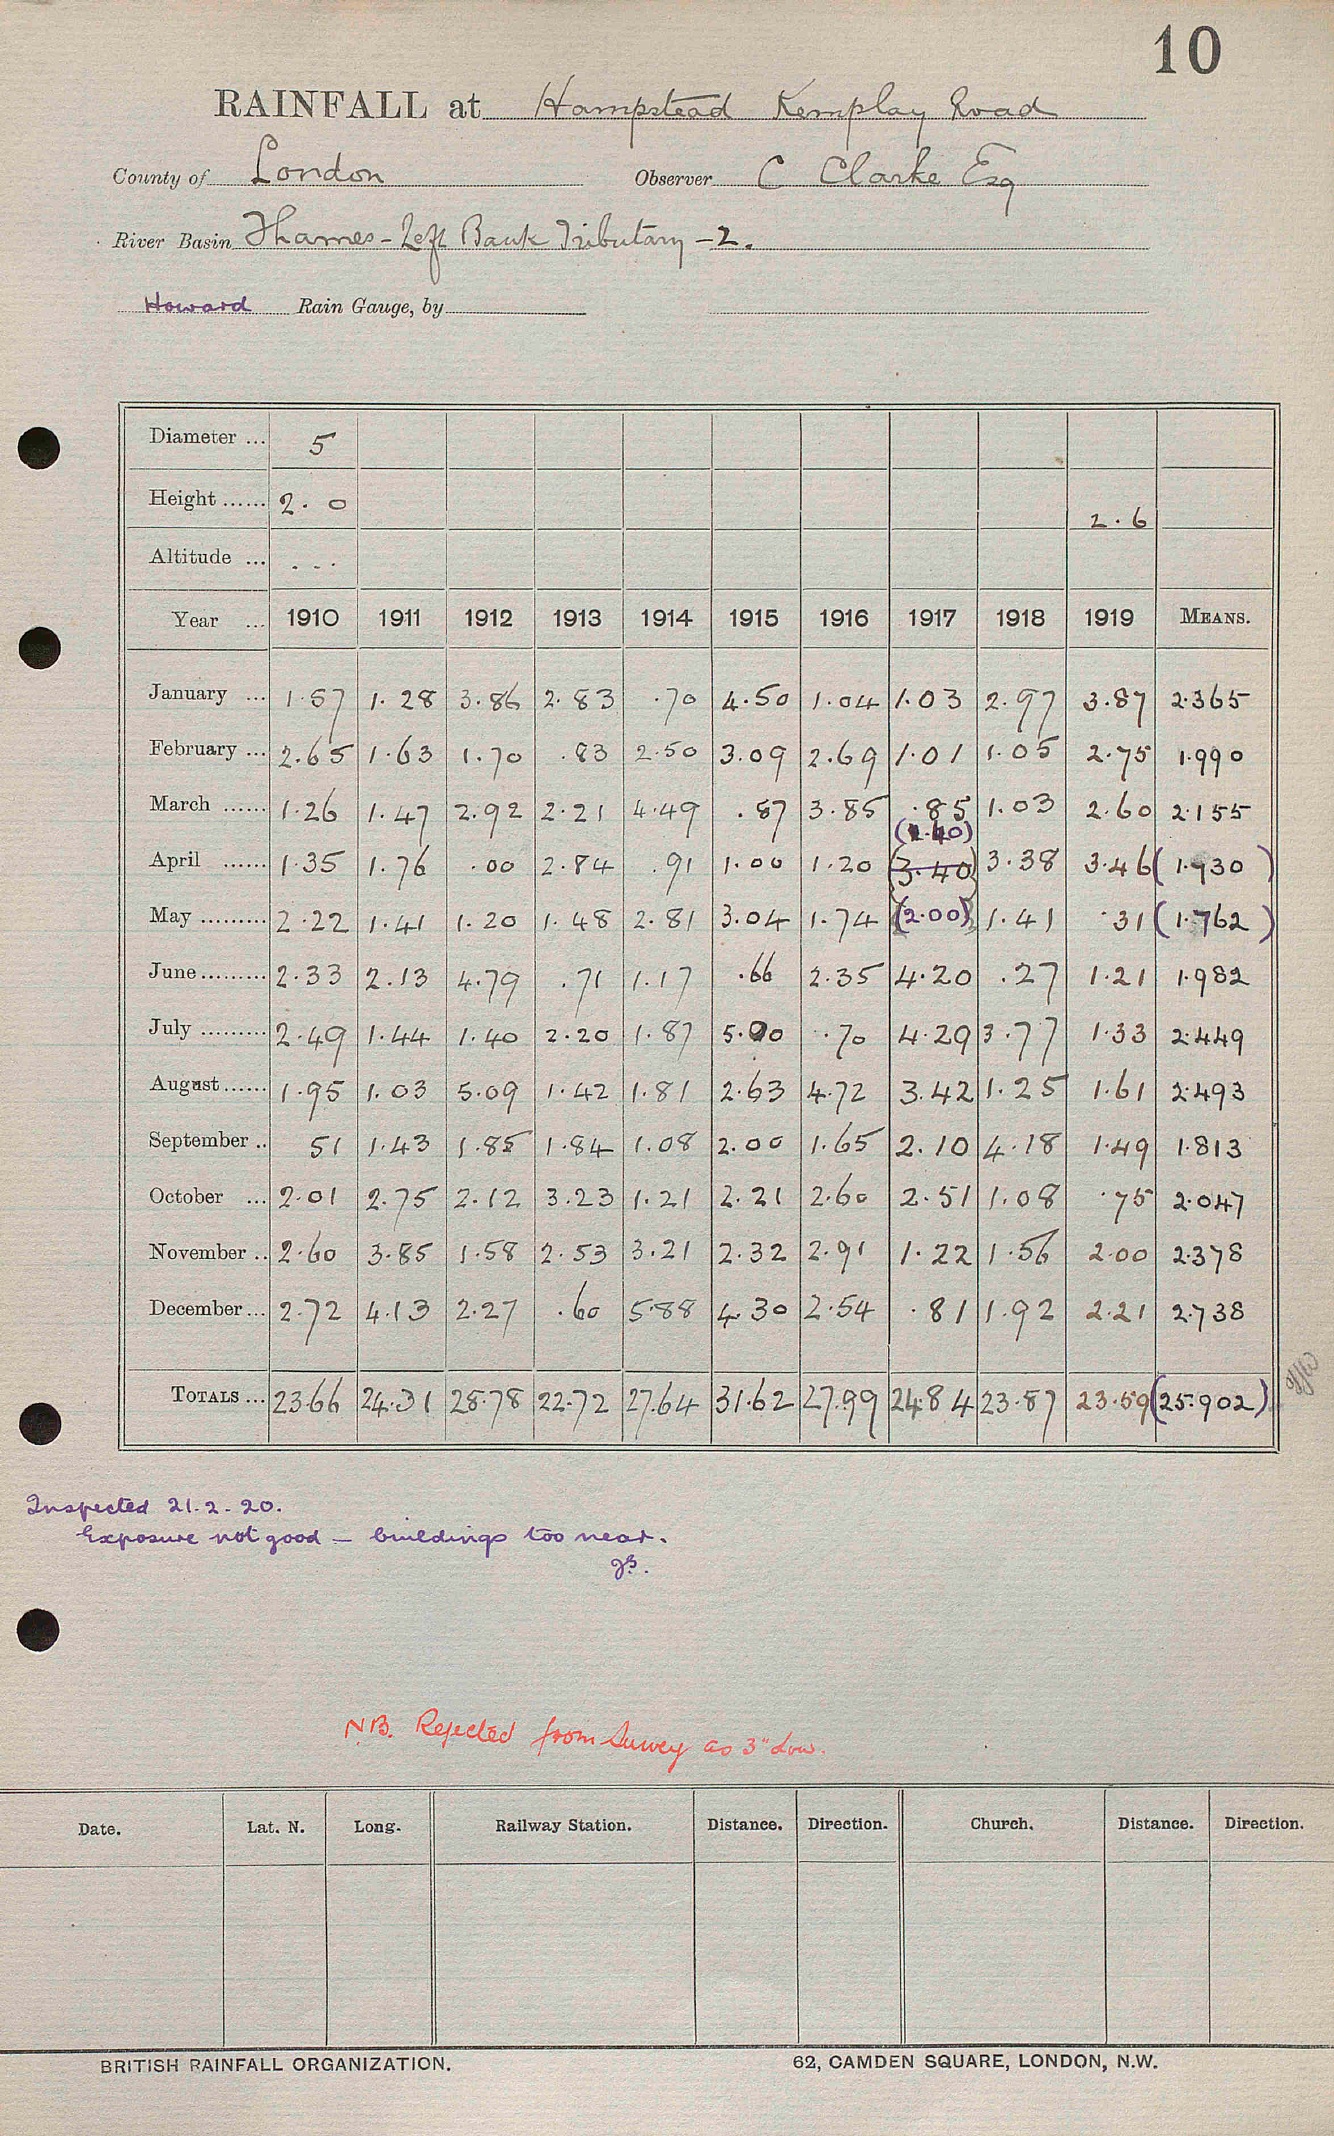 10
RAINFALL at Hampstead Kemplay Road
County of London Observer C Clarke Esq
River Basin Thames - Left Bank Tributary - 2.
Howard Rain Gauge, by
Diameter ... 5
Height ...... 2. 0 2.6
Altitude ... ...
Year ... 1910 1911 1912 1913 1914 1915 1916 1917 1918 1919 MEANS.
January ... 1.57 1.28 3.86 2.83 .70 4.50 1.04 1.03 2.97 3.87 2.365
February ... 2.65 1.63 1.70 .83 2.50 3.09 2.69 1.01 1.05 2.75 1.990
March ...... 1.26 1.47 2.92 2.21 4.49 .87 3.85 .85 1.03 2.60 2.155
(1.40)
April ...... 1.35 1.76 .00 2.84 .91 1.00 1.20 (3.40) 3.38 3.46 (1.730)
May ......... 2.22 1.41 1.20 1.48 2.81 3.04 1.74 (2.00) 1.41 .31 (1.762)
June ......... 2.33 2.13 4.79 .71 1.17 .66 2.35 4.20 .27 1.21 1.982
July ......... 2.49 1.44 1.40 2.20 1.87 5.00 .70 4.29 3.77 1.33 2.449
August ...... 1.95 1.03 5.09 1.42 1.81 2.63 4.72 3.42 1.25 1.61 2.493
September .. 51 1.43 1.85 1.84 1.08 2.00 1.65 2.10 4.18 1.49 1.813
October ... 2.01 2.75 2.12 3.23 1.21 2.21 2.60 2.51 1.08 .75 2.047
November .. 2.60 3.85 1.58 2.53 3.21 2.32 2.91 1.22 1.56 2.00 2.378
December ... 2.72 4.13 2.27 .60 5.88 4.30 2.54 .81 1.92 2.21 2.738
TOTALS ... 23.66 24.31 28.78 22.72 27.64 31.62 27.99 24.84 23.87 23.59 (25.902)
Inspected 21.2.20.
Exposure not good - buildings too near.
JB.
N.B. Rejected from Survey as 3" Low.
Date. Lat. N. Long. Railway Station. Distance. Direction. Church. Distance. Direction.
BRITISH RAINFALL ORGANIZATION. 62, CAMDEN SQUARE, LONDON, N.W.